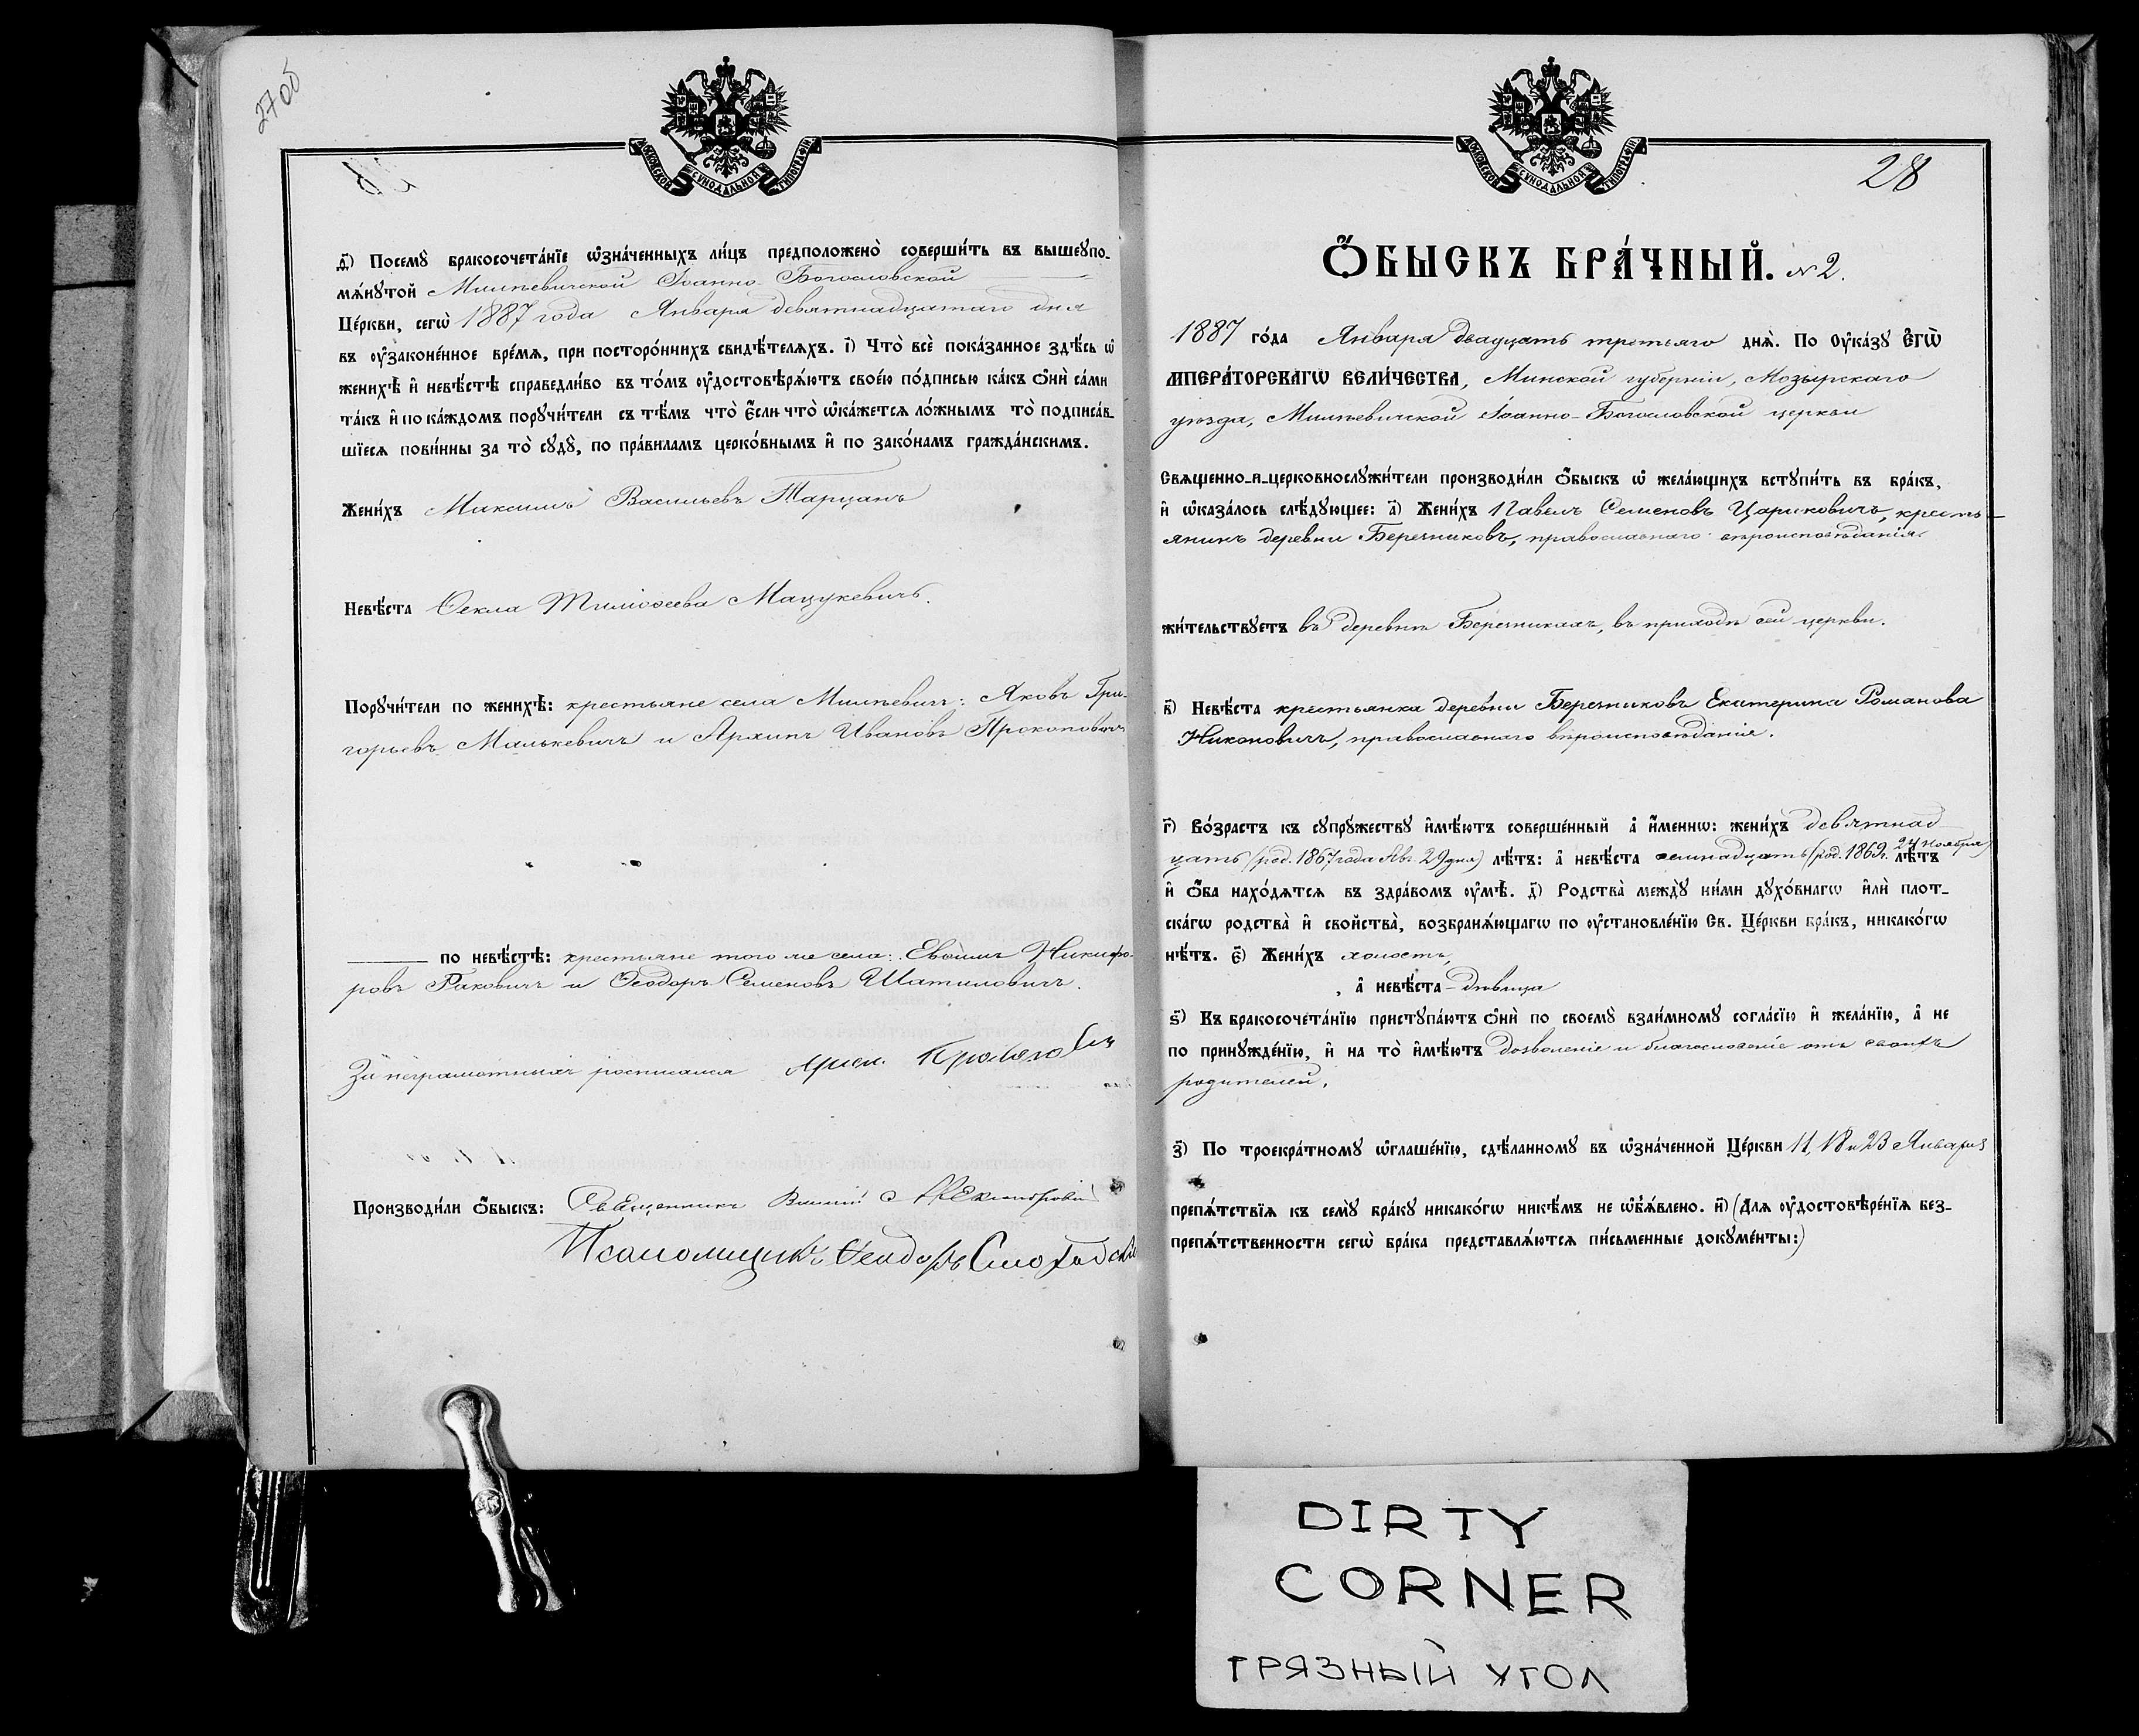 27об
МОСКОВСКОЙ СѴНОДАЛЬНОЙ ТИПОГРАФІИ
ѳ҃) Посемꙋ̀ бракосочета́нїе ѡ҆зна́ченныхъ ли́цъ предположено̀ соверши́ть въ вышеꙋпо-
мѧ́нꙋтой Милѣвичской Іоанно-Богословской
Це́ркви, сегѡ̀ 1887 года Января девятнадцатаго дня
въ ѹ҆законе́нное вре́мѧ, при посторо́ннихъ свидѣ́телѧхъ. і҃) Что̀ всѐ пока́занное здѣ́сь ѡ҆
женихѣ̀ и҆ невѣ́стѣ справедли́во въ то́мъ ѹ҆достовѣрѧ́ютъ свое́ю по́дписью ка́къ ѻ҆нѝ са́ми
та́къ и҆ по ка́ждомъ порꙋчи́тели съ тѣ́мъ что̀ є҆́сли что̀ ѡ҆ка́жетсѧ ло́жнымъ то̀ подписа́в-
шїесѧ пови́нны за то̀ сꙋдꙋ̀, по пра́виламъ церко́внымъ и҆ по зако́намъ гражда́нскимъ.
Жени́хъ Максимъ Васильевъ Тарцанъ
Невѣ́ста Ѳекла Тимоѳеева Мацукевичъ.
Порꙋчи́тели по женихѣ̀: крестьяне села Милѣвичъ: Яковъ Гри-
горьевъ Малькевичъ и Архипъ Ивановъ Прокоповичъ
по невѣ́стѣ: крестьяне того же села: Евѳимъ Никифо-
ровъ Раковичъ и Ѳеодоръ Семеновъ Шатиловичъ.
За неграмотныхъ росписался
Производи́ли ѻ҆́быскъ: Священникъ
Псаломщикъ Ѳеодоръ
28
МОСКОВСКОЙ СѴНОДАЛЬНОЙ ТИПОГРАФІИ
Ѻ҆́БЫСКЪ БРА́ЧНЫЙ. № 2.
1887 го́да Января двадцать третьяго днѧ̀. По Оу҆ка́зꙋ Є҆гѡ̀
И҆МПЕРА́ТОРСКАГѠ ВЕЛИ́ЧЕСТВА, Минской губерніи, Мозырскаго
уѣзда, Милѣвичской Іоанно-Богословской церкви
Свѧще́нно-и-церковнослꙋжи́тели производи́ли ѻ҆́быскъ ѡ҆ жела́ющихъ встꙋпи́ть въ бра́къ,
и҆ ѡ҆каза́лось слѣ́дꙋющее: а҃) Жени́хъ Павелъ Семеновъ Цариковичъ, кресть-
янинъ деревни Березниковъ, православнаго вѣроисповѣданія.
жи́тельствꙋетъ въ деревнѣ Березникахъ, въ приходѣ сей церкви.
в҃) Невѣ́ста крестьянка деревни Березниковъ Екатерина Романова
Никоновичъ, православнаго вѣроисповѣданія.
г҃) Во́зрастъ къ сꙋпрꙋ́жествꙋ и҆мѣ́ютъ соверше́нный а҆ и҆́меннѡ: жени́хъ девятнад-
цать (род. 1867 года Авг. 29 дня) лѣ́тъ: а҆ невѣ́ста семнадцать (род. 1869 г. 24 Ноября) лѣ́тъ
и҆ ѻ҆́ба нахо́дѧтсѧ въ здра́вомъ ѹ҆мѣ̀. д҃) Родства̀ междꙋ̀ ни́ми дꙋхо́внагѡ и҆лѝ плот-
ска́гѡ родства̀ и҆ сво́йства̀, возбранѧ́ющагѡ по ѹ҆становле́нїю Св. Це́ркви бра́къ, никако́гѡ
нѣ́тъ. є҃) Жени́хъ холостъ,
, а҆ невѣ́ста - дѣвица
ѕ҃) Къ бракосочета́нїю пристꙋпа́ютъ ѻ҆нѝ по своемꙋ̀ взаи́мномꙋ согла́сїю и҆ жела́нїю, а҆ не
по принꙋжде́нїю, и҆ на то̀ и҆мѣ́ютъ дозволеніе и благословеніе отъ своихъ
родителей.
з҃) По троекра́тномꙋ ѡ҆глаше́нїю, сдѣ́ланномꙋ въ ѡ҆зна́ченной Це́ркви 11, 18 и 23 Января
препѧ́тствїѧ къ семꙋ̀ бра́кꙋ никако́гѡ никѣ́мъ не ѡ҆б̾ѧ́влено. и҃) (Длѧ ѹ҆достовѣре́нїѧ без-
препѧ́тственности сегѡ̀ бра́ка представлѧ́ютсѧ пи́сьменные докꙋме́нты:)
DIRTY
CORNER
ГРЯЗНЫЙ УГОЛ